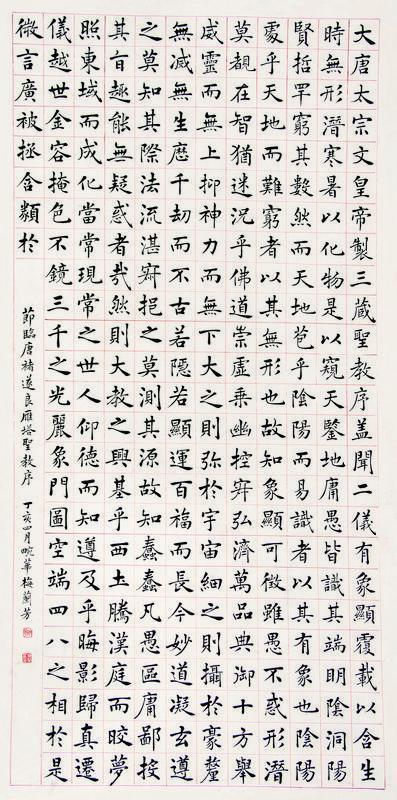 大唐太宗文皇帝製三藏聖教序盖聞二儀有象顯覆載以含生
時無形潛寒暑以化物是以窺天鑒地庸愚皆識其端明陰洞陽
賢哲罕窮其數然而天地苞乎陰陽而易識者以其有象也陰陽
處乎天地而難窮者以其無形也故知象顯可徵雖愚不惑形潛
莫覩在智猶迷況乎佛道崇虛乘幽控寂弘濟萬品典御十方舉
威靈而無上抑神力而無下大之則弥於宇宙細之則攝於豪釐
無滅無生歷千劫而不古若隱若顯運百福而長今妙道凝玄遵
之莫知其際法流湛寂挹之莫測其源故知蠢蠢凡愚區庸鄙投
其旨趣能無疑惑者哉然則大教之興基乎西土騰漢庭而皎夢
照東域而成化當常現常之世人仰德而知遵及乎晦影歸真遷
儀越世金容掩色不鏡三千之光麗象門圖空端四八之相於是
微言廣被拯含類於
節臨唐褚遂良雁塔聖教序 丁亥四月畹華梅蘭芳